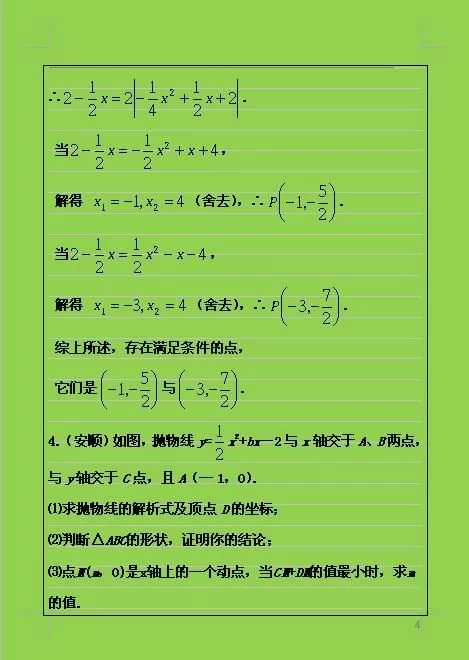 ∴2-1/2x=2|-1/4x²+1/2x+2|.
当2-1/2x=-1/2x²+x+4,
解得 x₁=-1,x₂=4 (舍去),∴P(-1,-5/2).
当2-1/2x=1/2x²-x-4,
解得 x₁=-3,x₂=4 (舍去),∴P(-3,-7/2).
综上所述，存在满足条件的点，
它们是(-1,-5/2)与(-3,-7/2).
4.（安顺）如图，抛物线 y=1/2x²+bx—2 与 x 轴交于 A、B 两点，
与 y 轴交于 C 点，且 A（一 1，0）.
⑴求抛物线的解析式及顶点 D 的坐标；
⑵判断△ABC的形状，证明你的结论；
⑶点M(m，0)是x轴上的一个动点，当CM+DM的值最小时，求m
的值.
4